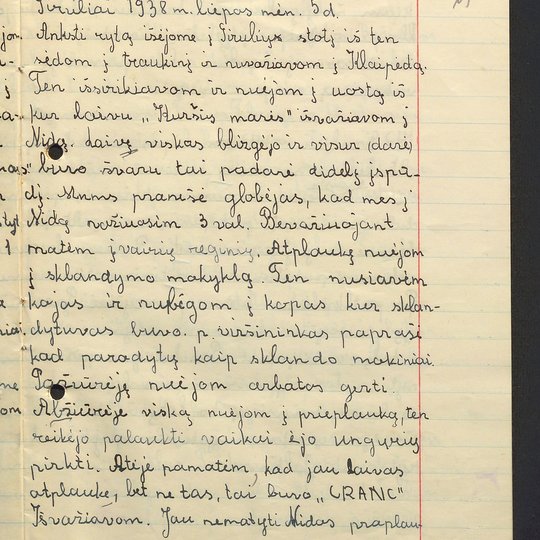 Tirūliai 1938 m. liepos mėn. 5 d.
Anksti rytą išėjome į Tirulių stotį iš ten
sėdom į traukinį ir nuvažiavom į Klaipėdą.
Ten išsirikiavom ir nuėjom į uostą iš
kur laivu „Kuršių marės" išvažiavom į
Nidą. Laivę viskas blizgėjo ir visur (darė)
buvo švaru tai padarė didelį įspū-
dį. Mums pranešė globėjas, kad mes į
Nidą važiuosim 3 val. Bevažiuojant
matėm įvairių reginių. Atplaukę nuėjom
į sklandymo mokyklą. Ten nusiavėm
kojas ir nubėgom į kopas kur sklan-
dytuvas buvo. p. viršininkas paprašė
kad parodytų kaip sklando mokiniai.
Pažiūrėję nuėjom arbatos gerti.
Abžiūrėje viską nuėjom į prieplauką, ten
reikėjo palaukti vaikai ėjo ungurių
pirkti. Atėje pamatėm, kad jau laivas
atplaukė, bet ne tas, tai buvo „CRANC"
Išvažiavom. Jau nematyti Nidos praplau-